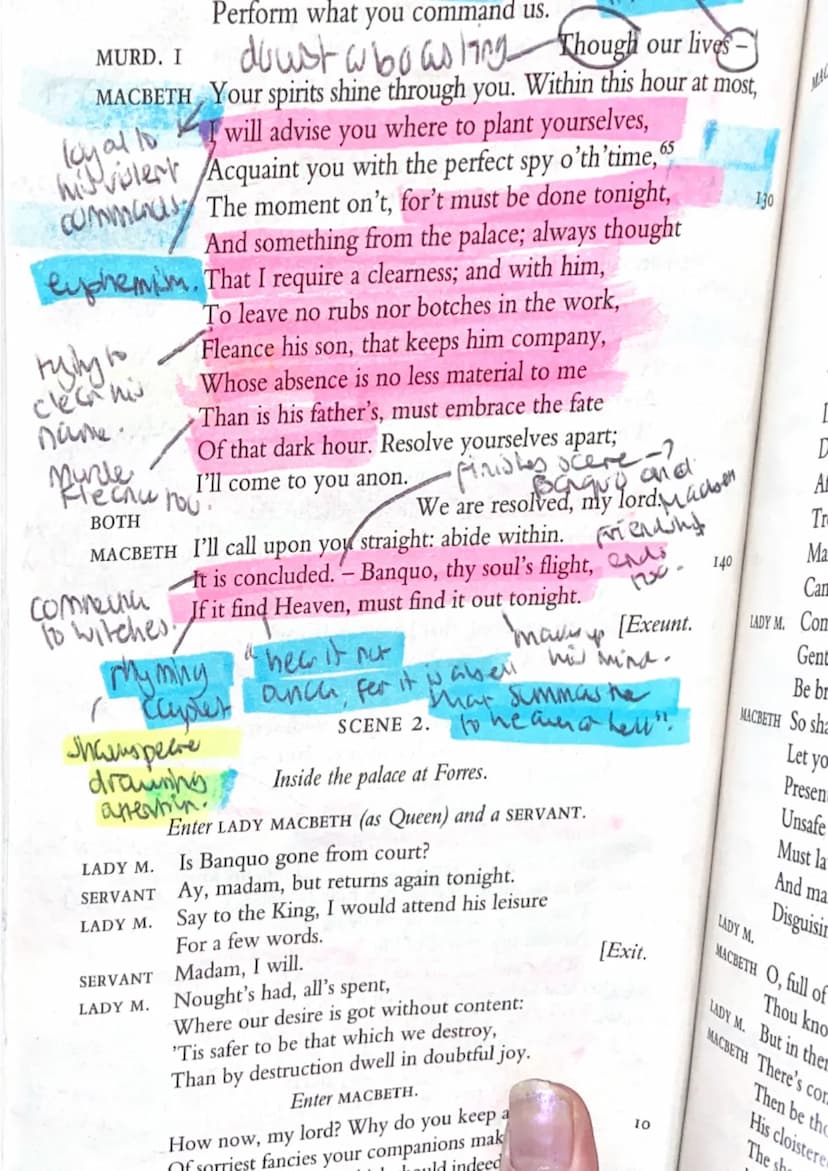 Perform what you command us.
MURD. I Though our lives –
doubt a boasting
MACBETH Your spirits shine through you. Within this hour at most,
I will advise you where to plant yourselves,
Acquaint you with the perfect spy o'th'time,65
The moment on't, for't must be done tonight, 130
And something from the palace; always thought
That I require a clearness; and with him,
To leave no rubs nor botches in the work,
Fleance his son, that keeps him company,
Whose absence is no less material to me
Than is his father's, must embrace the fate
Of that dark hour. Resolve yourselves apart;
I'll come to you anon.
BOTH We are resolved, my lord.
MACBETH I'll call upon you straight: abide within.
It is concluded. – Banquo, thy soul's flight, 140
If it find Heaven, must find it out tonight.
[Exeunt.
loyal to
his violent
commands.
euphemism.
trying to
clear his
name.
Fleance too.
finishes scene –
Banquo and
friendship
ends
too.
to witches.
made up
his mind.
rhyming
couplet
"hear it not
for it is a bell
that summons
to heaven or hell".
drawing
attention.
SCENE 2.
Inside the palace at Forres.
Enter LADY MACBETH (as Queen) and a SERVANT.
LADY M. Is Banquo gone from court?
SERVANT Ay, madam, but returns again tonight.
LADY M. Say to the King, I would attend his leisure
For a few words.
SERVANT Madam, I will. [Exit.
LADY M. Nought's had, all's spent,
Where our desire is got without content:
'Tis safer to be that which we destroy,
Than by destruction dwell in doubtful joy.
Enter MACBETH.
How now, my lord? Why do you keep 10
Of sorriest fancies your companions
indeed
MAC
Tr
Ma
Can
LADY M. Con
Gent
Be br
MACBETH So sha
Let yo
Presen
Unsafe
Must la
And ma
Disguisin
LADY M.
MACBETH O, full of
Thou kno
LADY M. But in then
MACBETH There's con
Then be tho
His cloistere
The sh